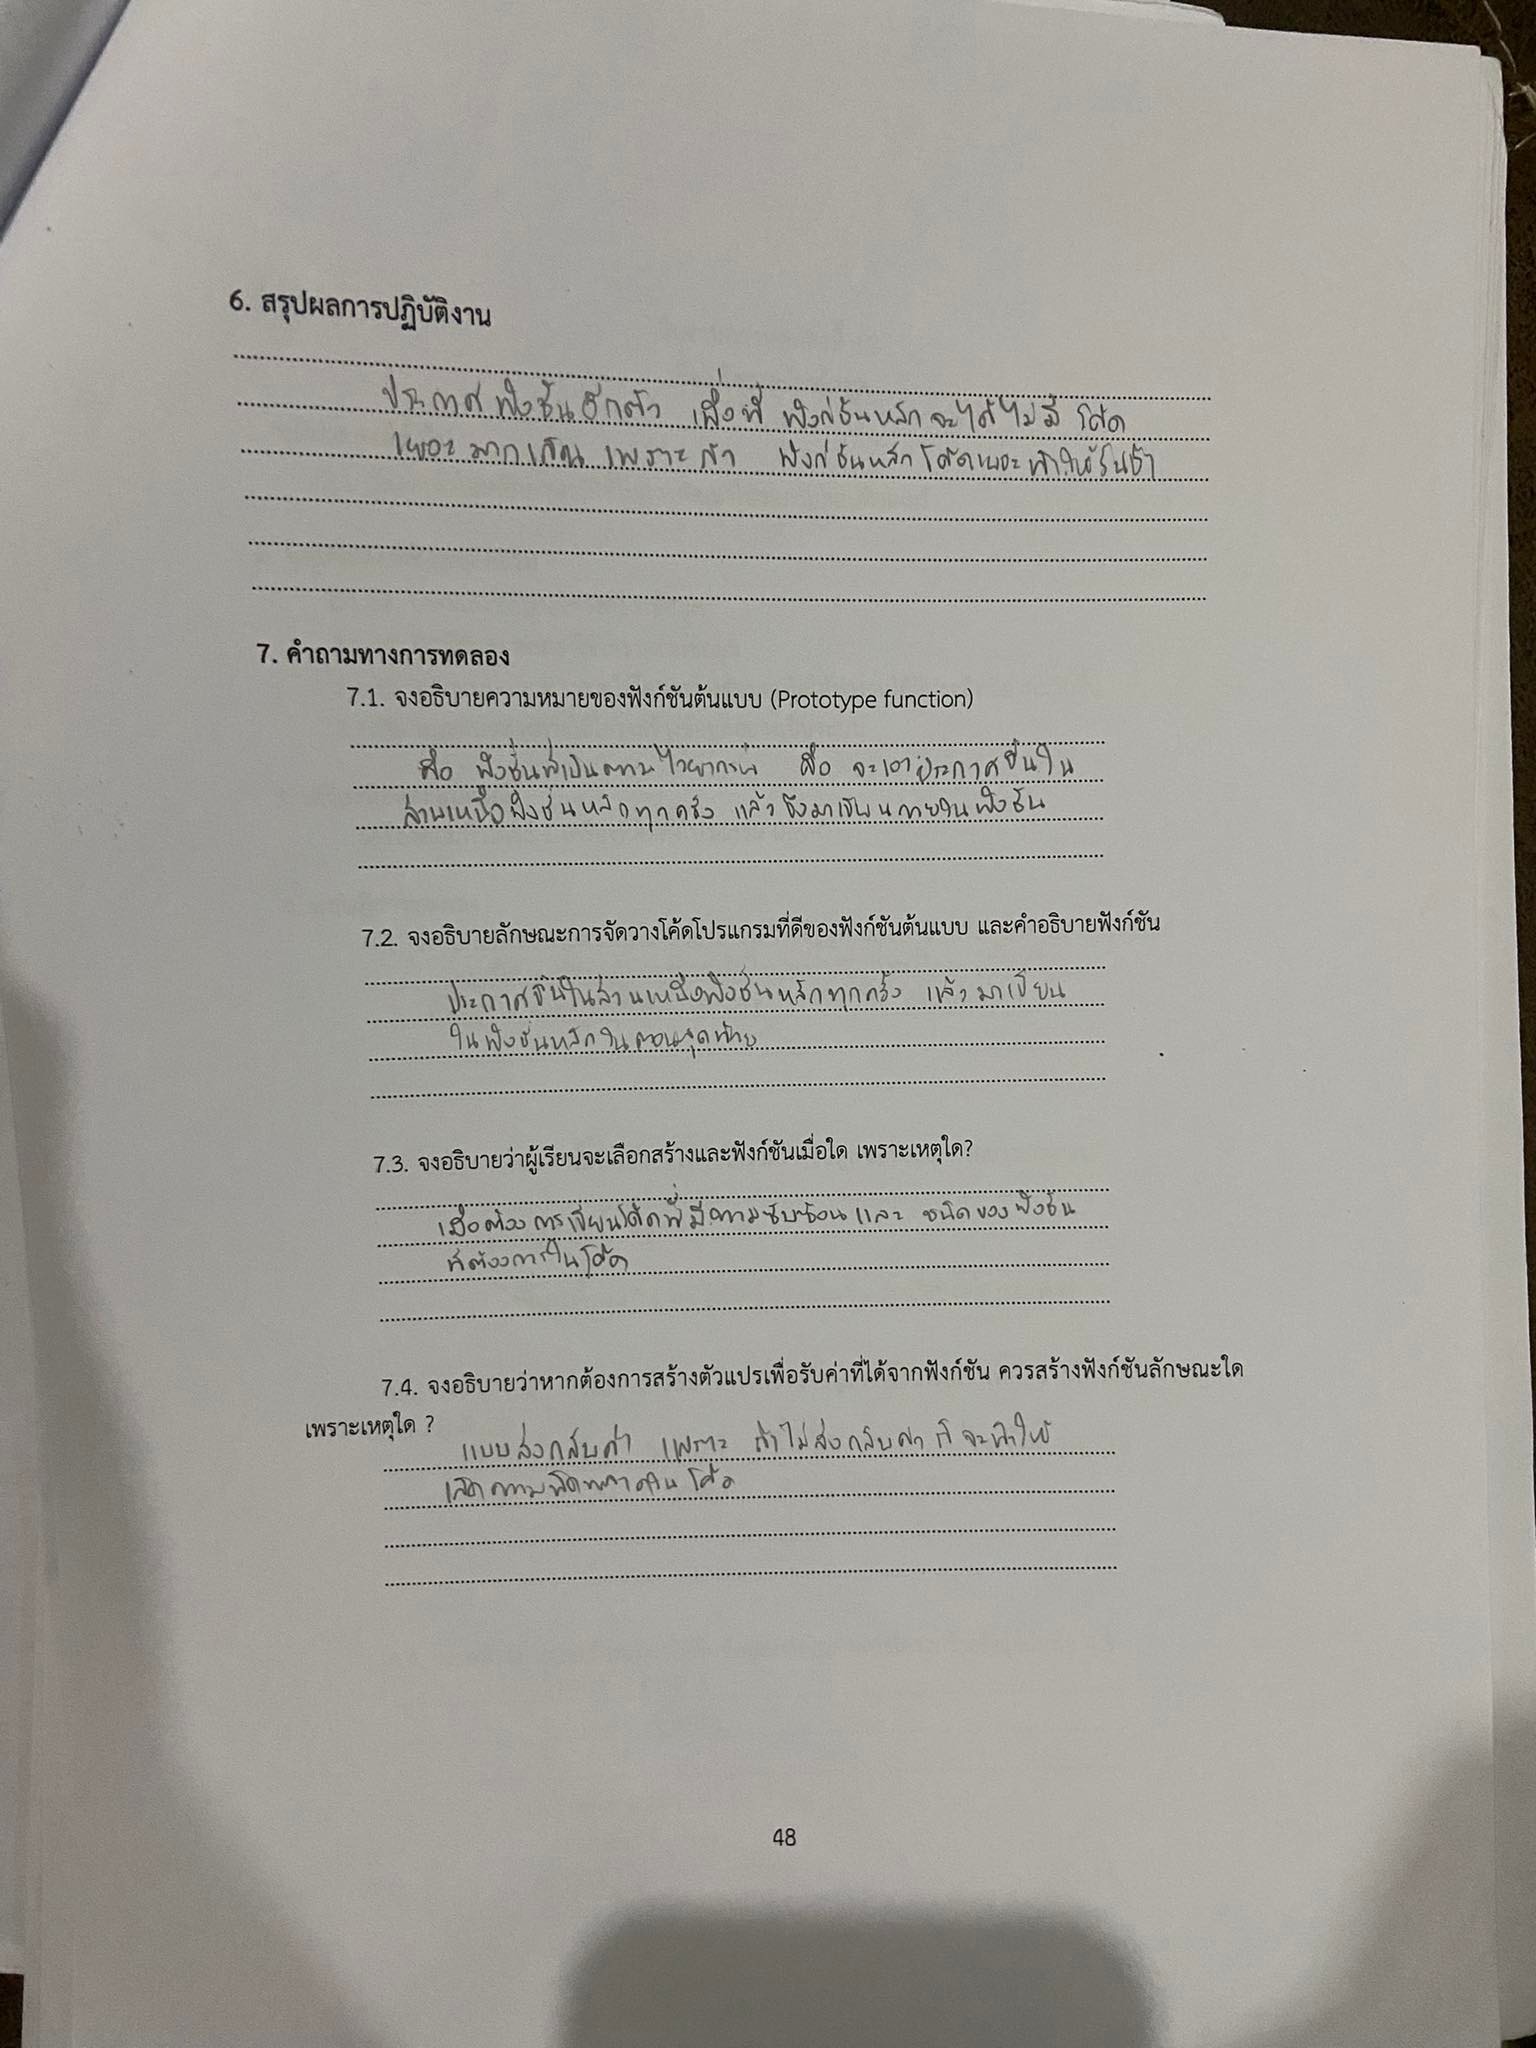 6. สรุปผลการปฏิบัติงาน
ประกาศฟังชั่นอีกตัว เพื่อที่ ฟังก์ชันหลักจะได้ไม่มี โค้ด
เยอะมากเกิน เพราะถ้า ฟังก์ชันหลักโค้ดเยอะทำให้รันช้า
7. คำถามทางการทดลอง
7.1. จงอธิบายความหมายของฟังก์ชันต้นแบบ (Prototype function)
คือ ฟังชั่นที่เป็นตามไวยากรณ์ คือ จะเอาประกาศขึ้นใน
ส่วนเหนือฟังชั่นหลักทุกครั้ง แล้วจึงมาเขียนภายในฟังชั่น
7.2. จงอธิบายลักษณะการจัดวางโค้ดโปรแกรมที่ดีของฟังก์ชันต้นแบบ และคำอธิบายฟังก์ชัน
ประกาศขึ้นในส่วนเหนือฟังชั่นหลักทุกครั้ง แล้วมาเขียน
ในฟังชั่นหลักในตอนสุดท้าย
7.3. จงอธิบายว่าผู้เรียนจะเลือกสร้างและฟังก์ชันเมื่อใด เพราะเหตุใด?
เมื่อต้องการเขียนโค้ดที่มีความซับซ้อนและ ชนิดของฟังชั่น
ที่ต้องการในโค้ด
7.4. จงอธิบายว่าหากต้องการสร้างตัวแปรเพื่อรับค่าที่ได้จากฟังก์ชัน ควรสร้างฟังก์ชันลักษณะใด
เพราะเหตุใด ?
แบบส่งกลับค่า เพราะ ถ้าไม่ส่งกลับค่า ก็จะทำให้
เกิดความผิดพลาดใน โค้ด
48